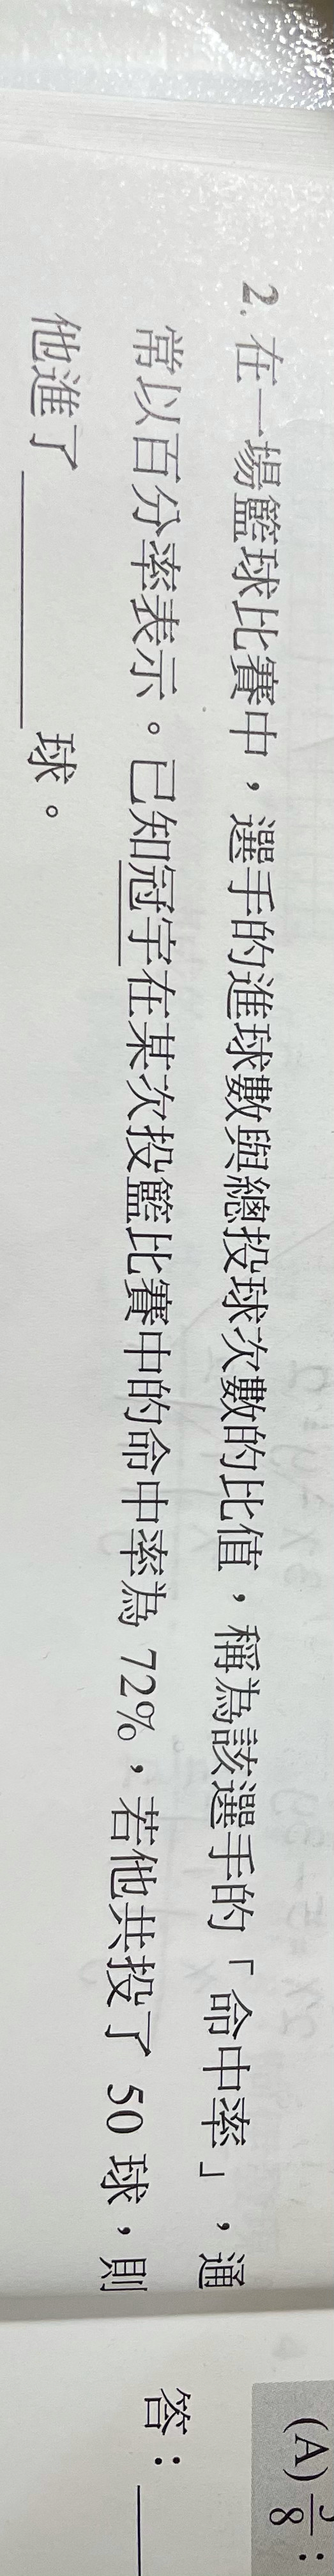 2. 在一場籃球比賽中，選手的進球數與總投球次數的比值，稱為該選手的「命中率」，通
常以百分率表示。已知冠宇在某次投籃比賽中的命中率為 72%，若他共投了 50 球，則
他進了______球。
答：______
(A)
8